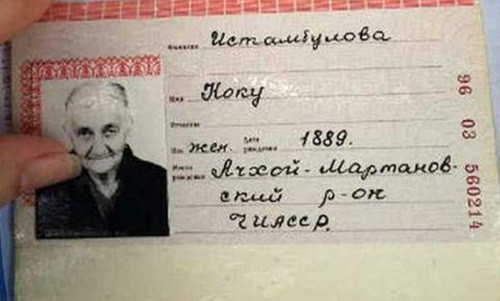 Фамилия Истамбулова
Имя Коку
Отчество
Пол жен. Дата рождения 1889.
Место рождения Ачхой-Мартанов-
ский р-он
ЧИАССР.
96 03 560214